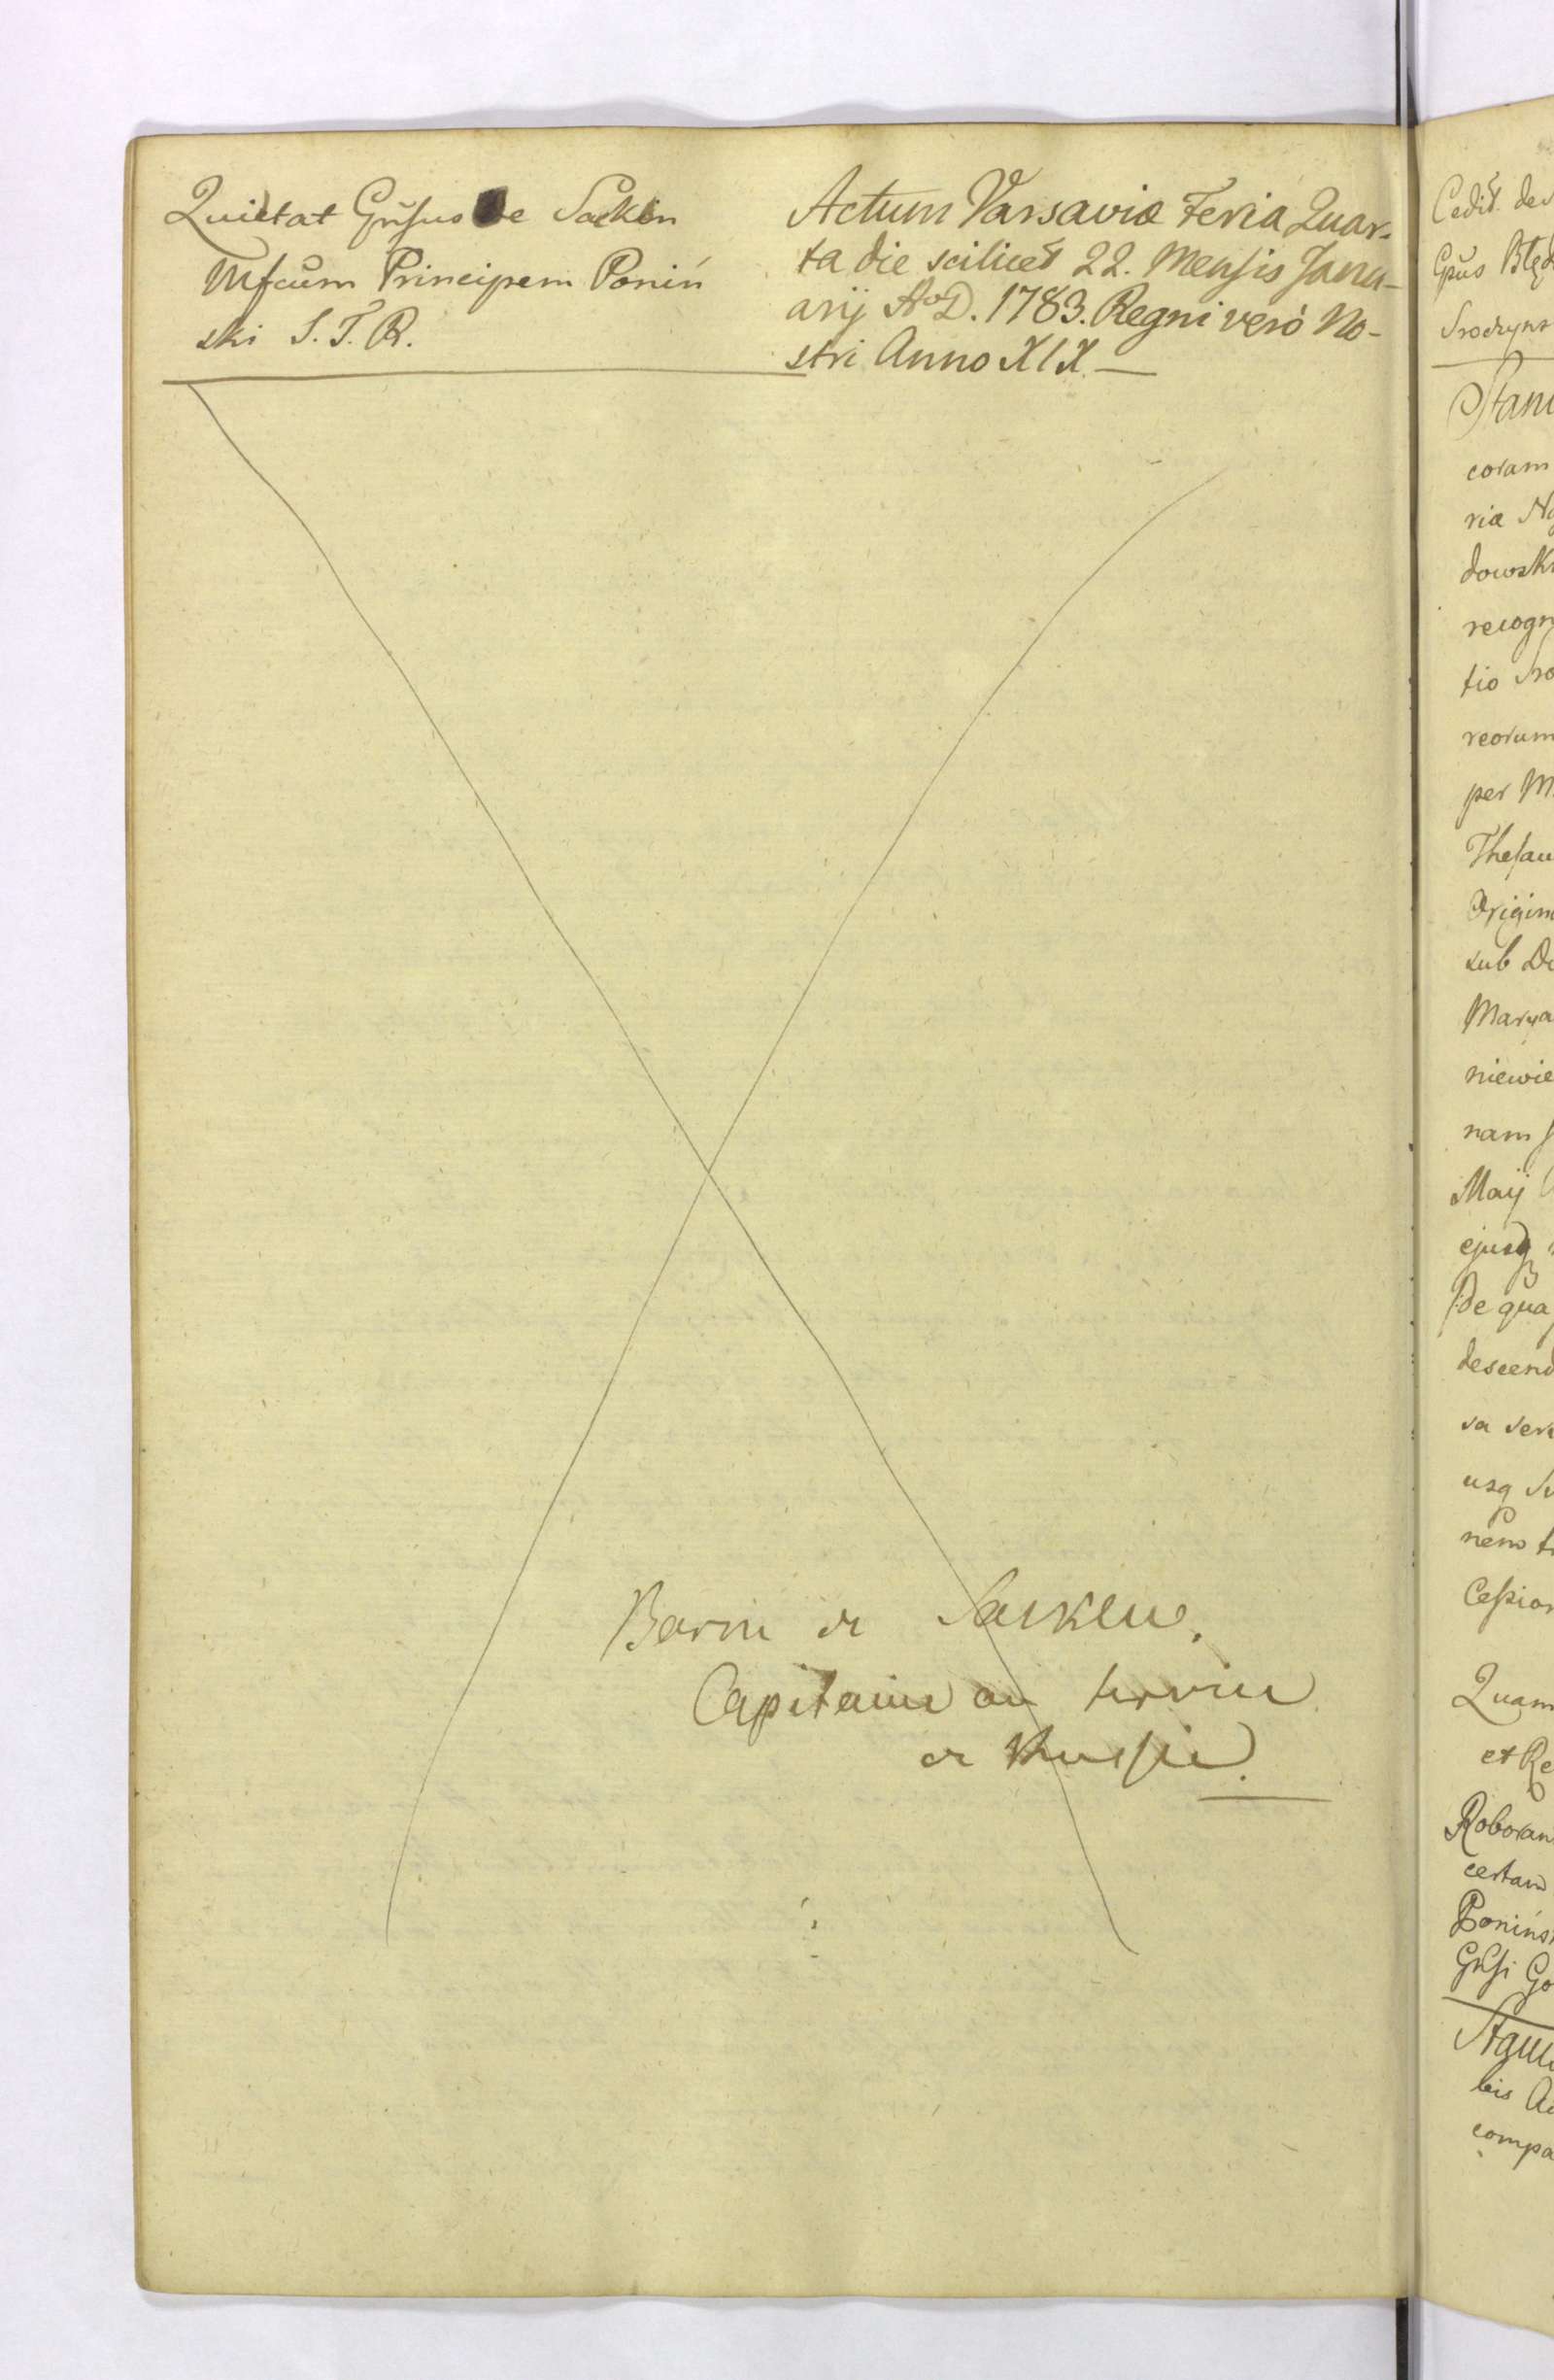 Quietat Gnsus de Sacken
Mfcum Principem Poniń
ski S. T. R.
Actum Varsaviæ Feria Quar-
ta die scilicet 22. Mensis Janu-
arij Ao D. 1783. Regni verò No-
stri Anno XIX
Baron de Sacken.
Capitaine au service
de Russie.
Cedit
Gnus Błęd
Sroczyns
Stani
coram
riæ
dowski
recogn
tio
reorum
per M
Thesau
Origin
sub De
Marya
niewie
nam
Maij
ejusq
De qua
descend
sa
usq
nem
Cession
Quam
et Re
Roboran
certam
Ponińs
Gnsi Go
Stani
bis Ac
compa